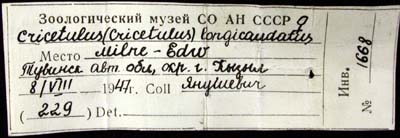 Зоологический музей СО АН СССР ♀
Cricetulus (Cricetulus) longicaudatus
Место Milne-Edw
Тувинск авт. обл, окр. г. Кызыл
8/VIII 1947 г. Coll Янушевич
(229) Det.
Инв.
№ 1668